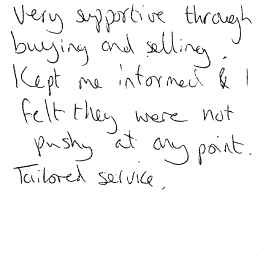 Very supportive through
buying and selling.
Kept me informed & I
felt they were not
pushy at any point.
Tailored service.